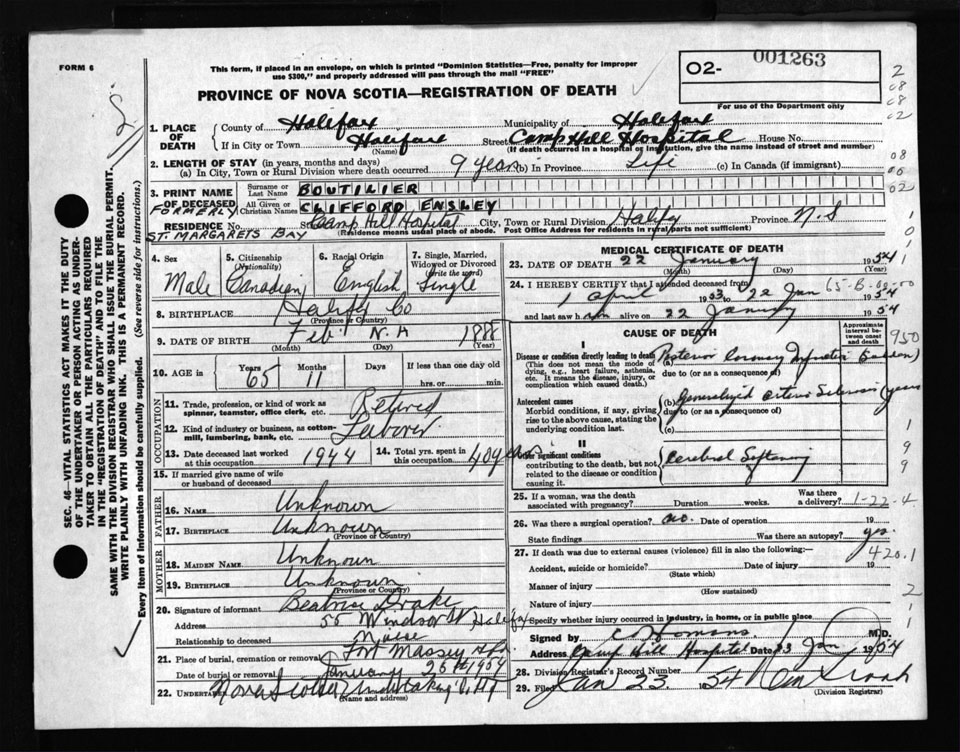 FORM 6
This form, if placed in an envelope, on which is printed "Dominion Statistics—Free, penalty for improper
use $300," and properly addressed will pass through the mail "FREE"
PROVINCE OF NOVA SCOTIA—REGISTRATION OF DEATH
O2- 001263
For use of the Department only
1. PLACE OF DEATH
County of Halifax Municipality of Halifax
If in City or Town Halifax (Name) Street Camp Hill Hospital House No.
(If death occurred in a hospital or institution, give the name instead of street and number)
2. LENGTH OF STAY (in years, months and days)
(a) In City, Town or Rural Division where death occurred 9 years (b) in Province Life (c) In Canada (if immigrant)
3. PRINT NAME OF DECEASED
Surname or Last Name BOUTILIER
All Given or Christian Names CLIFFORD ENSLEY
FORMERLY ST. MARGARETS BAY
RESIDENCE No. St. Camp Hill Hospital City, Town or Rural Division Halifx Province N.S
(Residence means usual place of abode. Post Office Address for residents in rural parts not sufficient)
4. Sex Male
5. Citizenship (Nationality) Canadian
6. Racial Origin English
7. Single, Married, Widowed or Divorced (Write the word) Single
8. BIRTHPLACE Halifx Co
(Province or Country)
9. DATE OF BIRTH Feb. N.A 1888
(Month) (Day) (Year)
10. AGE in Years 65 Months 11 Days If less than one day hrs. or min.
OCCUPATION
11. Trade, profession, or kind of work as spinner, teamster, office clerk, etc. Retired
12. Kind of industry or business, as cotton-mill, lumbering, bank, etc. Laborer
13. Date deceased last worked at this occupation 1944
14. Total yrs. spent in this occupation 40
15. If married give name of wife or husband of deceased
FATHER
16. NAME Unknown
17. BIRTHPLACE Unknown
(Province or Country)
MOTHER
18. MAIDEN NAME Unknown
19. BIRTHPLACE Unknown
(Province or Country)
20. Signature of informant Beatrice Drake
Address 55 Windsor St Halifax
Relationship to deceased Niece
21. Place of burial, cremation or removal Fort Massey Hfx.
Date of burial or removal January 25th 1954
22. UNDERTAKER Nova Scotia Undertaking
MEDICAL CERTIFICATE OF DEATH
23. DATE OF DEATH 22 January 1954
(Month) (Day) (Year)
24. I HEREBY CERTIFY that I attended deceased from
1 April 1953 to 22 Jan 1954
and last saw him alive on 22 January 1954
CAUSE OF DEATH
Approximate interval between onset and death
I
Disease or condition directly leading to death
(This does not mean the mode of dying, e.g., heart failure, asthenia, etc. It means the disease, injury, or complication which caused death.)
(a) Posterior Coronary
due to (or as a consequence of)
Antecedent causes
Morbid conditions, if any, giving rise to the above cause, stating the underlying condition last.
(b) Generalized arterio Sclerosis (years
due to (or as a consequence of)
(c)
II
Other significant conditions
contributing to the death, but not related to the disease or condition causing it.
Cerebral Softening
25. If a woman, was the death associated with pregnancy? Duration weeks. Was there a delivery? 1-22-4
26. Was there a surgical operation? no. Date of operation 19
State findings Was there an autopsy? yes.
27. If death was due to external causes (violence) fill in also the following:— 420.1
Accident, suicide or homicide? Date of injury 19
(State which)
Manner of injury
(How sustained)
Nature of injury
Specify whether injury occurred in industry, in home, or in public place
Signed by M.D.
Address Camp Hill Hospital Date 23 Jan 1954
28. Division Registrar's Record Number
29. Filed Jan 23 1954
(Division Registrar)
SEC. 46—VITAL STATISTICS ACT MAKES IT THE DUTY
OF THE UNDERTAKER OR PERSON ACTING AS UNDERTAKER
TO OBTAIN ALL THE PARTICULARS REQUIRED
IN THE "REGISTRATION OF DEATH" AND TO FILE THE
SAME WITH THE DIVISION REGISTRAR WHO SHALL ISSUE THE BURIAL PERMIT.
WRITE PLAINLY WITH UNFADING INK. THIS IS A PERMANENT RECORD.
Every item of Information should be carefully supplied. (See reverse side for instructions.)